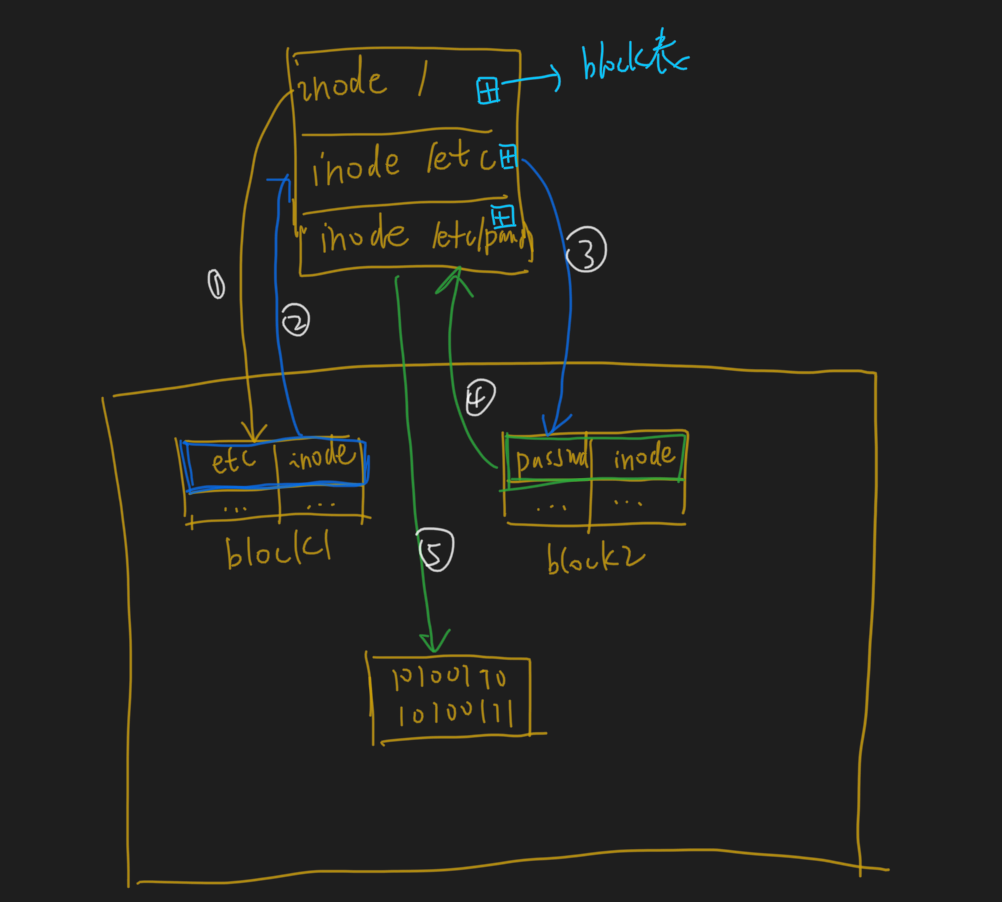 block表
inode /
inode /etc
inode /etc/passwd
①
②
③
④
etc inode
... ...
block1
passwd inode
... ...
block2
⑤
10100110
10100111